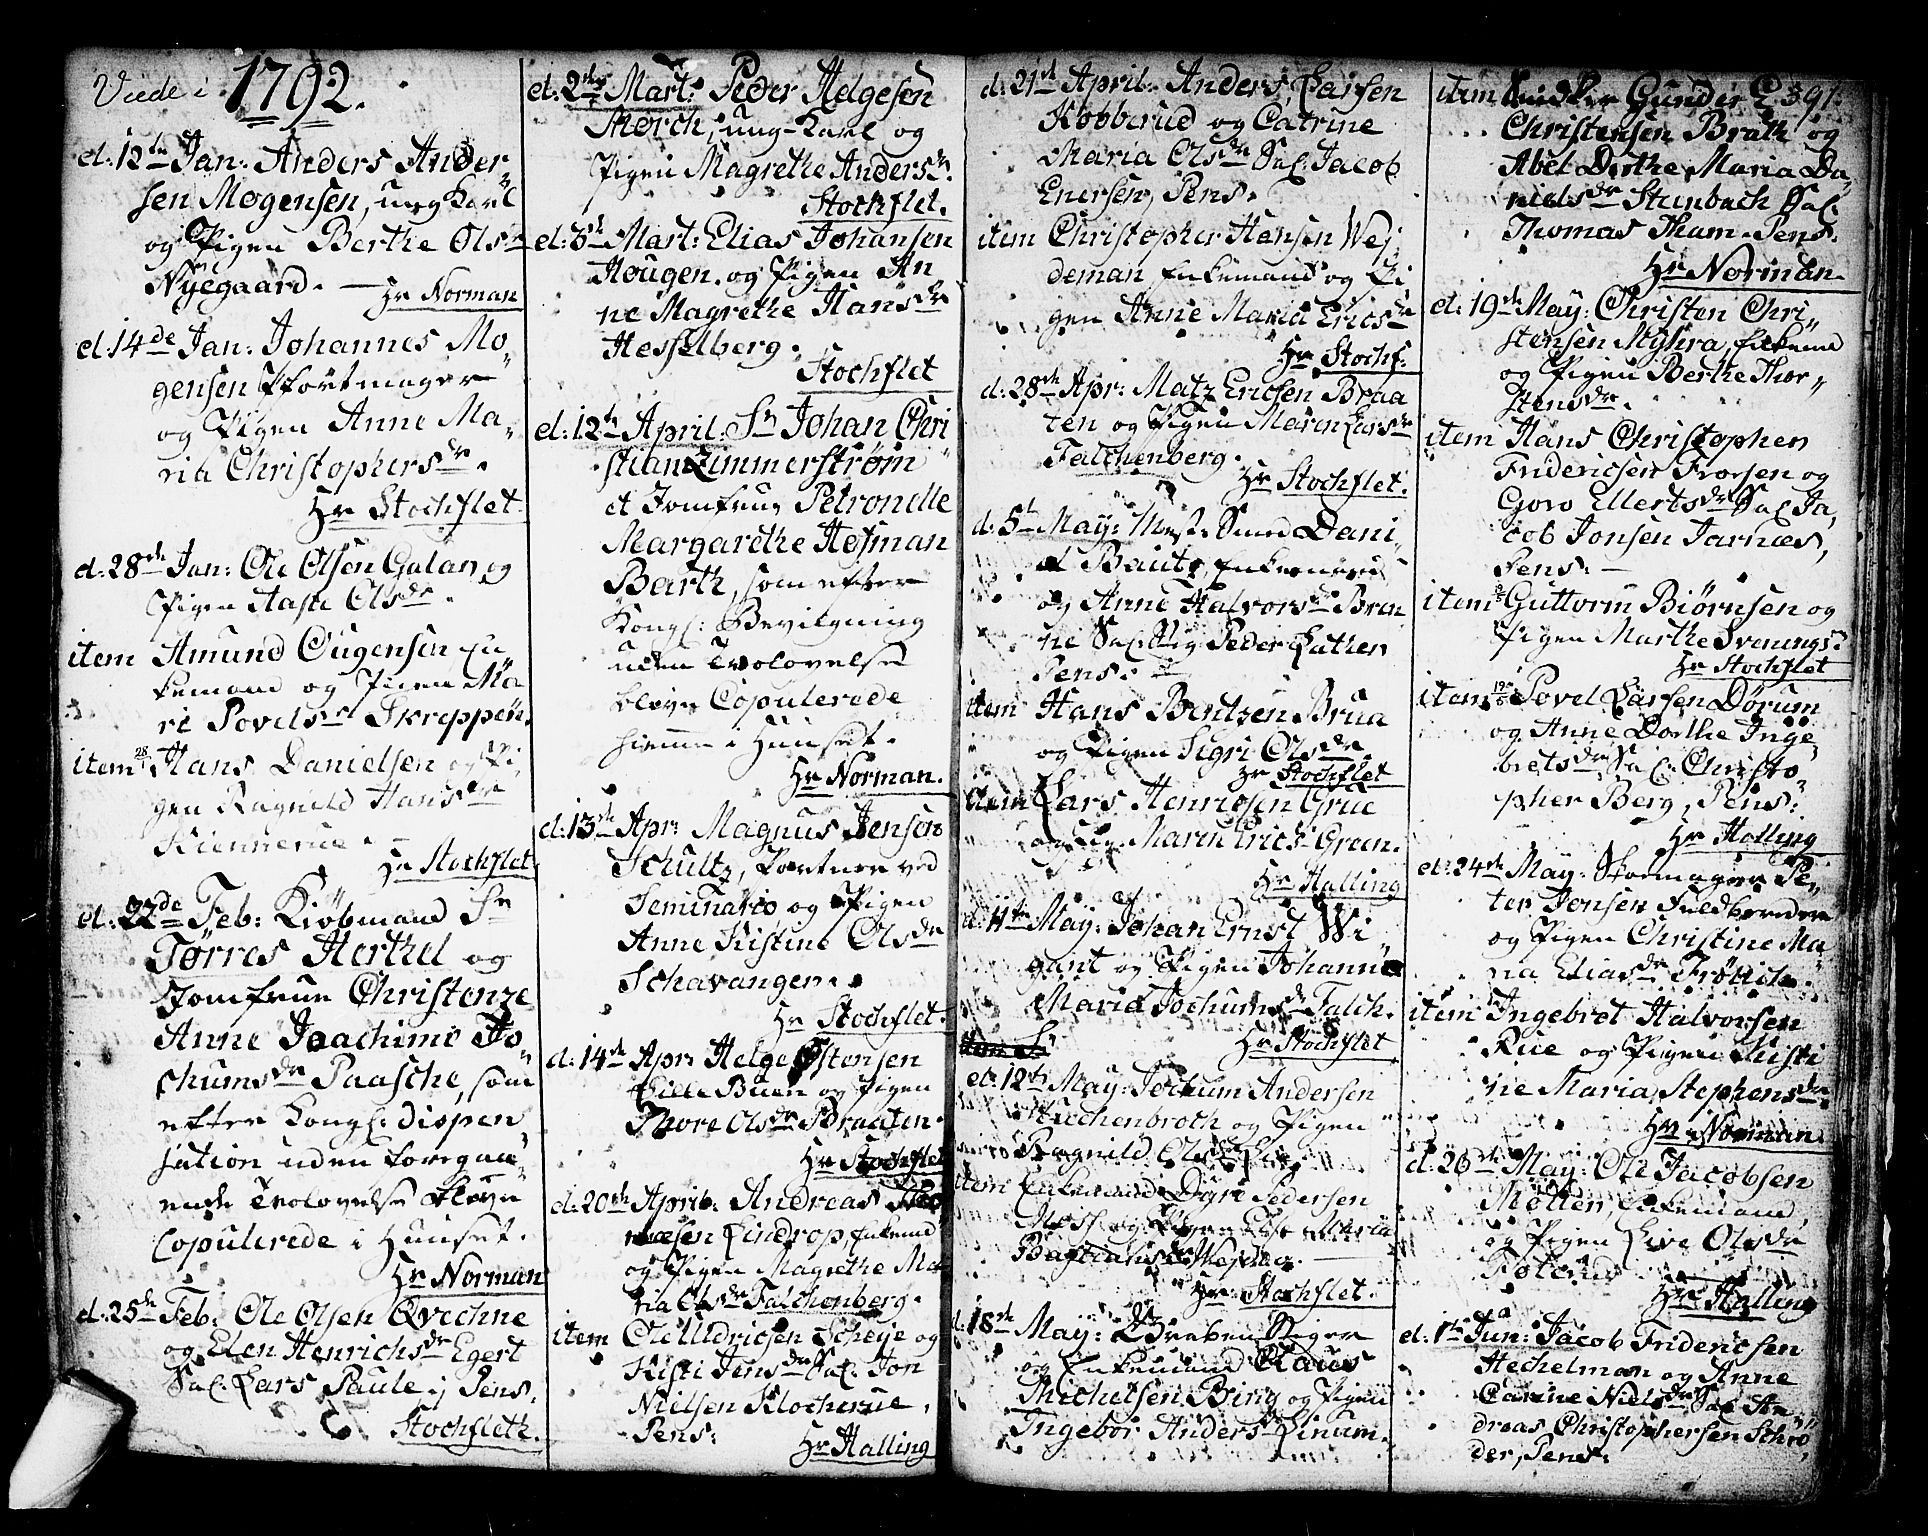 Viede i 1792.
d: 12te Jan: Anders Ander-
sen Mogensen, ung Karl
og Pigen Berthe Olsdr
Nÿegaard. — Hr Norman
d: 14de Jan: Johannes Mo-
gensen Pfortmager
og Pigen Anne Ma-
ria Christophersdr.
Hr Stochflet.
d: 28de Jan: Ole Olsen Gulan og
Pigen Aase Olsdr.
item Amund Ougensen En
kemand og Pigen Ma-
ri Povelsdr Skreppen.
item 28 Hans Danielsen og Pi-
gen Ragnild Hansdr
Kiennerue. —
Hr Stochflet.
d: 22de Feb: Kiöbmand Sr
Tørres Herthel og
Jomfrue Christenze
Anne Joachime Jo-
chumsdr Paasche, som
efter Kongl: dispen-
sation uden foregaa-
ende Trolovelse bleve
Copulerede i Huuset.
Hr Norman
d: 25de Feb: Ole Olsen Qvechne
og Elen Henrichsdr Egert
Sal: Lars Paule ij Pens.
Stochfleth.
d: 2de Mart: Peder Helgesen
Mörch, ung-Karl og
Pigen Magrethe Andersdr.
Stochflet.
d: 3de Mart: Elias Johansen
Hougen. og Pigen An
ne Magrethe Hansdr
Hesselberg.
Stochflet
d: 12te April: Sr Johan Chri
stian Zimmerstrøm
et Jomfrue Petronelle
Margarethe Hofman
Barth, som efter
Kongl: Bevilgning
uden Trolovelse
bleve Copulerede
hiemme i Huuset.
Hr Norman.
d: 13de Apr: Magnus Jensen
Schultz, Portner ved
Seminario og Pigen
Anne Kistine Olsdr
Schavangen.
Hr Stochflet.
d: 14de Apr: Helge Østensen
Lille Buen og Pigen
Thore Olsdr Braaten.
Hr Stochflet
d: 20de April: Andreas
Lindrop, Enkemd
og Pigen Magrethe Ma
ria Olsdr Falchenberg.
item Ole Uldricsen Scheÿe og
Kisti Jensdr Sal: Jon
Nielsen Klocherue,
Pens:
Hr Halling
d: 21de April: Anders, Larsen
Kobberud og Catrine
Maria Olsdr Sal: Jacob
Enersen, Pens.
item Christopher Hansen Wej
deman Enkemand og Pi
gen Anne Maria Ericsdr
Hr Stochf:
d: 28de Apr: Matz Ericsen Braa
ten og Pigen Maren Larsdr
Falchenberg.
Hr Stochflet.
d: 5te May: Mest: Smed Dani
el Bautz, Enkemand
og Anne Halvorsdr Bren
ne Sal: Peder Lathen
Pens:
item Hans Bentzen Brua
og Pigen Sigri Olsdr.
Hr Stochflet
item Lars Henricsen Grue
og Maren Ericsdr Green.
Hr Halling
d: 11te May: Johan Ernst Wi
gant og Pigen Johanne
Maria Jochumsdr Falch.
Hr Stochflet
d: 12te May: Jochum Andersen
Hechenbroch og Pigen
Ragnild Olsdr
item Enkemand Dyre Pedersen
Moss og Pigen Else Maria
Bastiansdr
Hr: Stochflet.
d: 18de May: Graben Stiger
og Enkemand Claus
Michelsen Bing og Pigen
Ingebor Andersdr Linum.
391.
item Gunder
Christensen Brath og
Abel Dorthe Maria Da-
nielsdr Stenbach Sal:
Thomas Tham. Pens.
Hr Norman.
d: 19de May: Christen Chri-
stensen Myhra, Enkemd
og Pigen Berthe Thor-
stensdr.
item Hans Christopher
Fridericsen Frorsen og
Goro Ellertsdr Sal Ja,
cob Jonsen Jarnæs,
Pens: —
item Guttorm Biørnsen og
Pigen Marthe Svenungsdr
Hr Stochflet
item 19 Povel Larsen Dørum
og Anne Dorthe Inge-
bretsdr Sal: Christo-
pher Berg, Pens:
Hr Halling
d: 24de May: Skomager Pe-
ter Jensen Fuldbereder
og Pigen Christine Ma-
ria Eliasdr Frölich.
item Ingebret Halvorsen
Rue og Pigen Kisti
ne Maria Stephensdr.
Hr Norman
d: 26de May: Ole Jacobsen
Mølten, Enkemand,
og Pigen Live Olsdr
Foterud
Hr Halling
d: 1te Juni Jacob Fridericsen
Hechelman og Anne
Carine Nielsdr Sal An
dreas Christophersen Schrö
der, Pens.